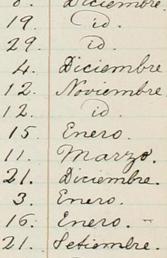 8. Diciembre.
19. id.
29. id.
4. Diciembre
12. Noviembre
12. id.
15. Enero.
11. Marzo.
21. Diciembre.
3. Enero.
16. Enero. -
21. Setiembre.